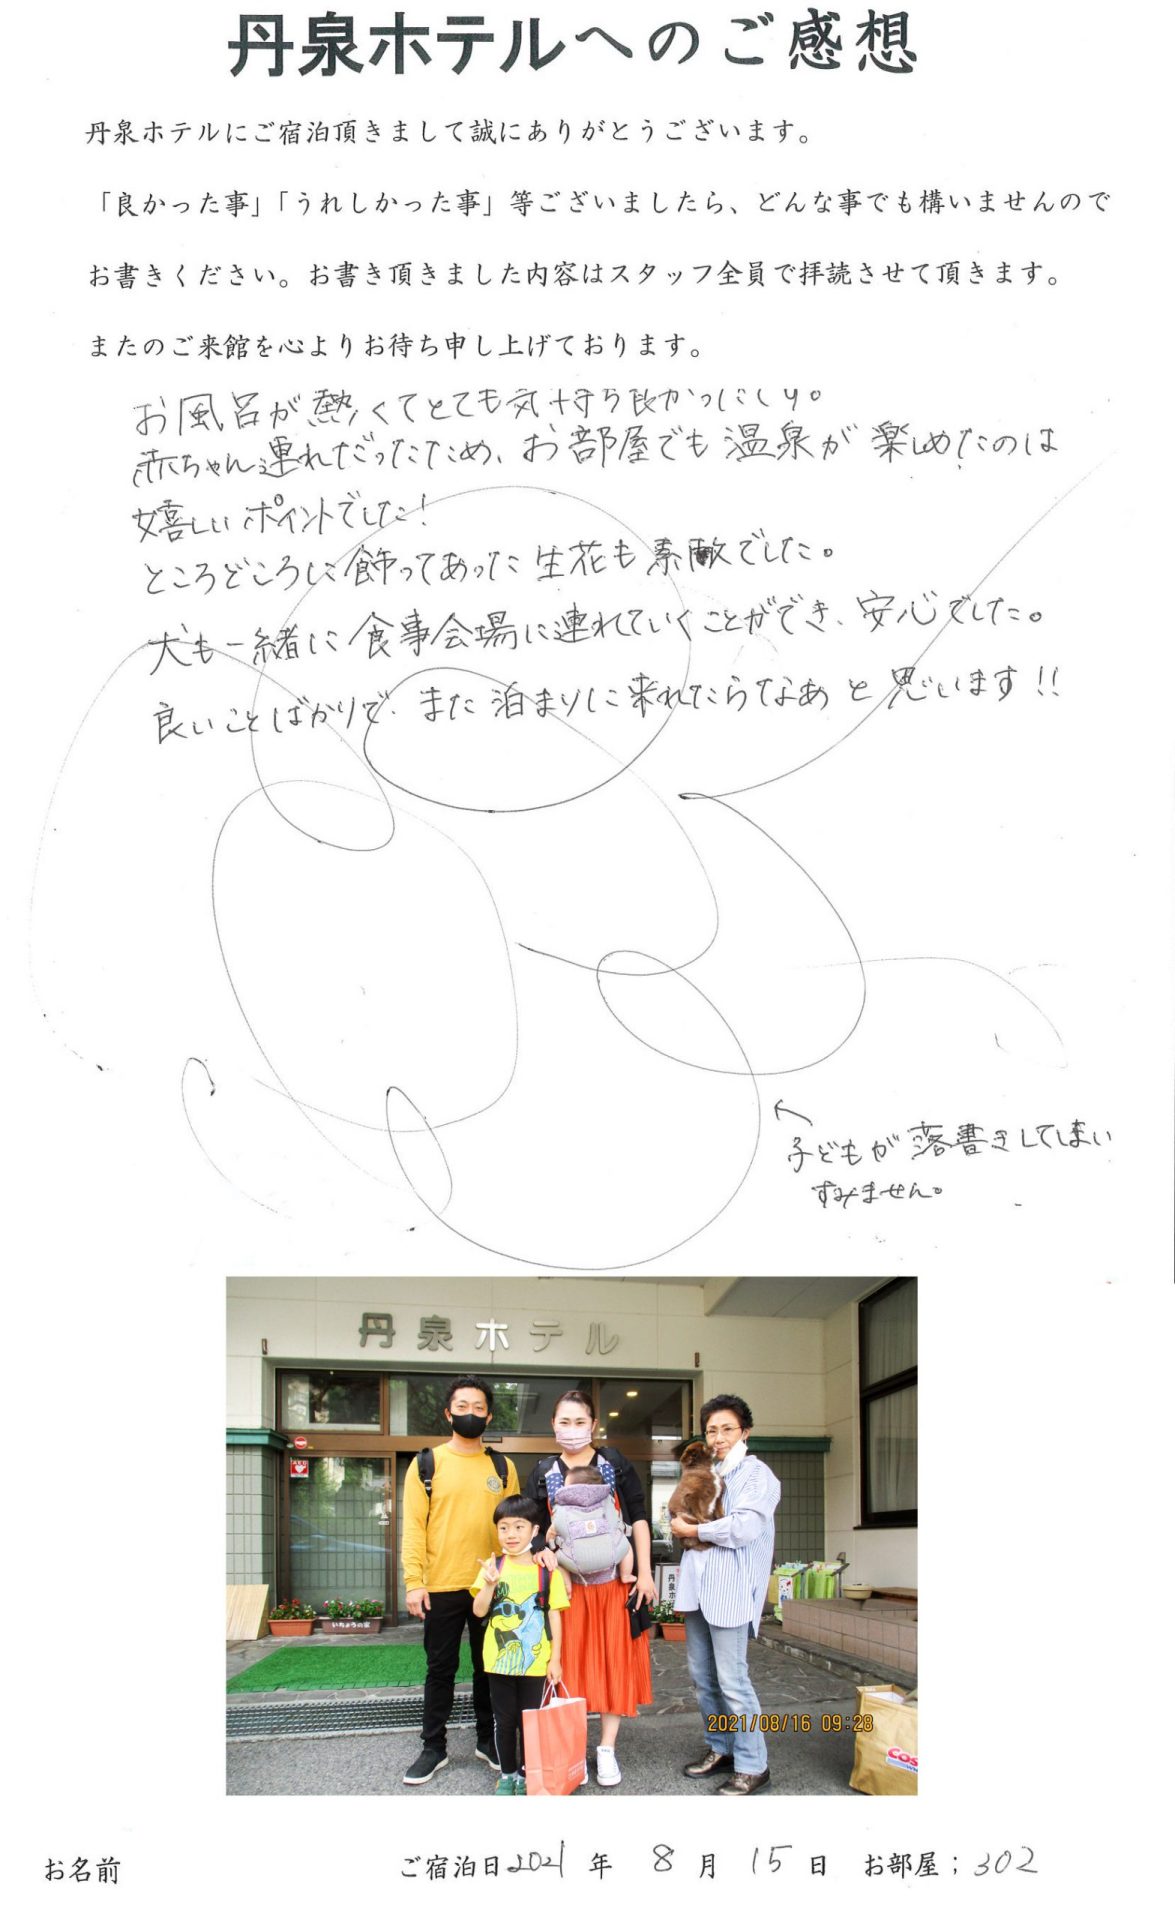 丹泉ホテルへのご感想
丹泉ホテルにご宿泊頂きまして誠にありがとうございます。
「良かった事」「うれしかった事」等ございましたら、どんな事でも構いませんので
お書きください。お書き頂きました内容はスタッフ全員で拝読させて頂きます。
またのご来館を心よりお待ち申し上げております。
お風呂が熱くてとても気持ち良かったです。
赤ちゃん連れだったため、お部屋でも温泉が楽しめたのは
嬉しいポイントでした!
ところどころに飾ってあった生花も素敵でした。
犬も一緒に食事会場に連れていくことができ、安心でした。
良いことばかりで、また泊まりに来れたらなあと思います!!
子どもが落書きしてしまい
すみません。
丹泉ホテル
AED
いちょうの家
丹泉ホ
2021/08/16 09:28
お名前 ご宿泊日2021年 8月 15日 お部屋;302